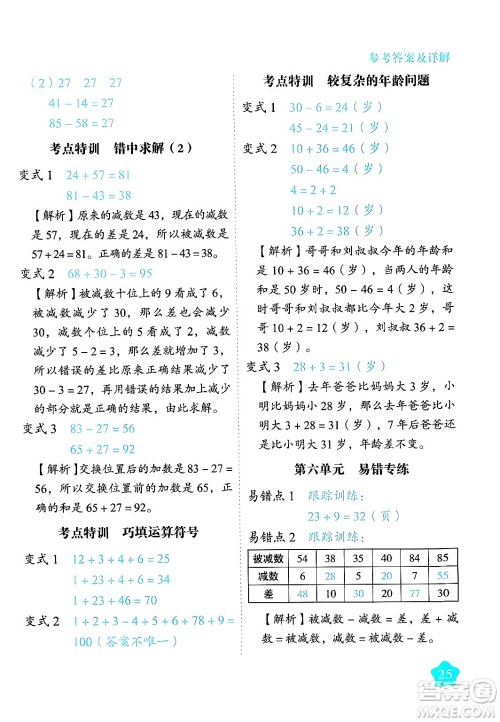 参考答案及详解
(2) 27 27 27
41-14=27
85-58=27
考点特训 错中求解(2)
变式1 24+57=81
81-43=38
【解析】原来的减数是43,现在的减数
是57,错误的差是24,所以被减数是
57+24=81。正确的差是81-43=38。
变式2 68+30-3=95
【解析】被减数十位上的9看成了6,被
减数减少了30,差也减少了30;减数个
位上的5看成了2,减数减少了
5-2=3,导致错误的差比正确的差多
3,所以错误的差比正确的差少了
30-3=27。再用错误的结果68加上错
误的结果与正确的结果相差的27就是
正确的结果,由此可得68+27=95。
变式3 83-27=56
65+27=92
【解析】交换位置后的加数是83-27=
56,所以交换位置前的加数是65。正确
的和是65+27=92。
考点特训 巧填运算符号
变式1 12+3+4+6=25
1+23+4+6=34
1+23+46=70
变式2 1+2+3+4+5+6+78+9-8=
100(答案不唯一)
考点特训 较复杂的年龄问题
变式1 30-6=24(岁)
45-24=21(岁)
变式2 10+36=46(岁)
50-46=4(岁)
4=2+2
36+2=38(岁)
【解析】哥哥和刘叔叔今年的年龄和
是10+36=46(岁),当两人的年龄和
是50岁时,年龄和比今年多了50-46=
4(岁),因为4=2+2,所以是2年后,
这时哥哥和刘叔叔都比今年大了2岁,
所以刘叔叔36+2=38(岁)。
变式3 28+3=31(岁)
【解析】去年爸爸比妈妈大3岁,去年
小明比妈妈小28岁,所以去年爸爸比
小明大28+3=31(岁),7年后爸爸还
是比小明大31岁。
第六单元 易错专练
易错点1 跟踪训练:
23+9=32(页)
易错点2 跟踪训练:
被减数 54 38 100 40 84 85
减数 6 10 51 20 28 5
差 48 28 49 20 56 80
【解析】被减数-减数=差,被减数-
差=减数,减数+差=被减数。
25